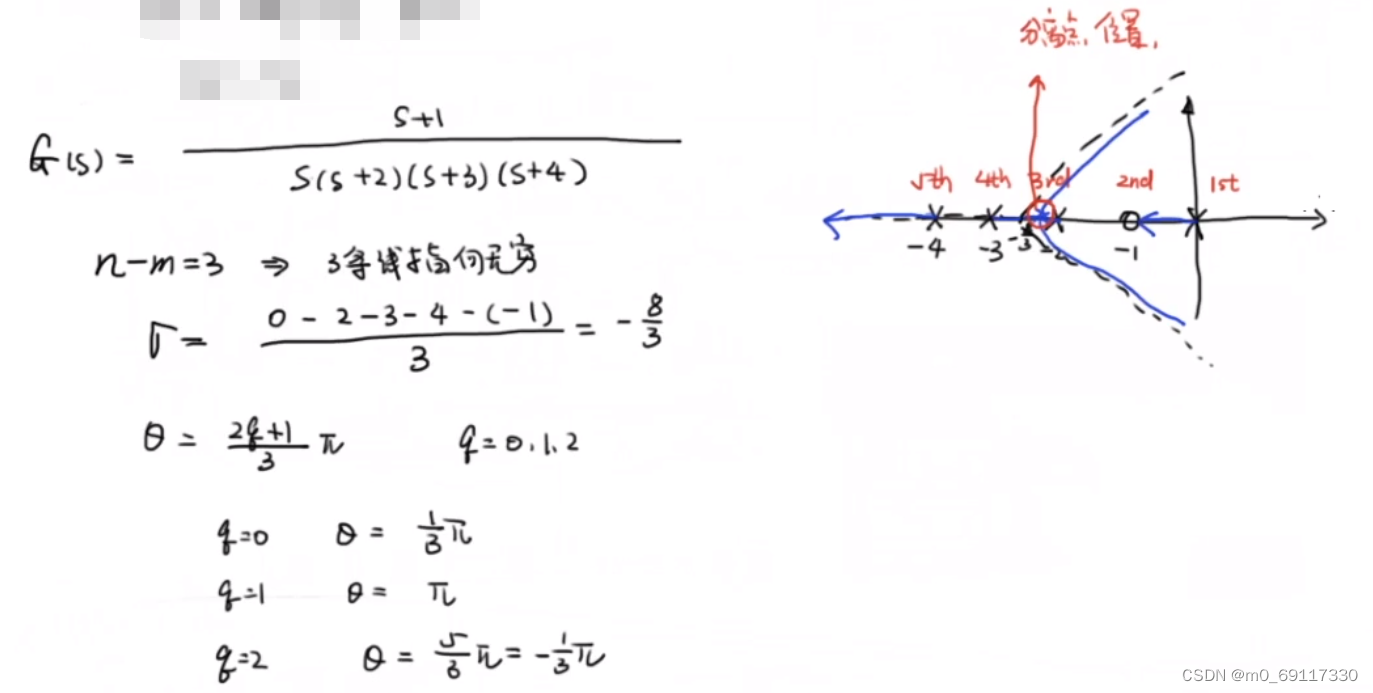 G(s) = (s+1) / (s(s+2)(s+3)(s+4))
n-m=3 ⇒ 3条线指向无穷
σ = (0-2-3-4-(-1)) / 3 = -8/3
θ = (2q+1)/3 π q=0.1.2
q=0 θ = 1/3 π
q=1 θ = π
q=2 θ = 5/3 π = -1/3 π
分离点,位置,
5th 4th 3rd 2nd 1st
-4 -3 -2 -1
CSDN @m0_69117330